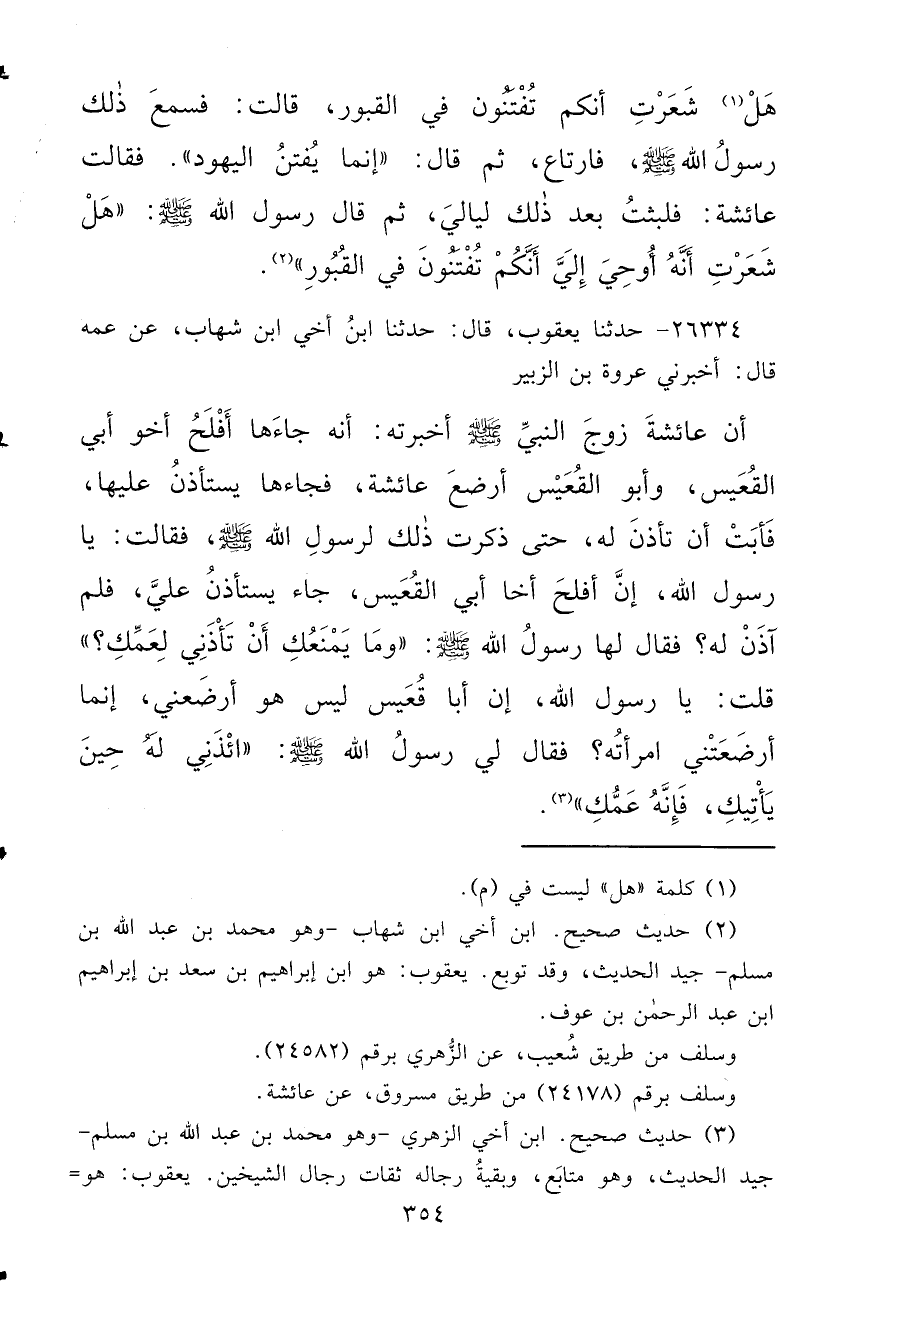 هَلْ(١) شَعَرْتِ أنكم تُفْتَنُون في القبور، قالت: فسمعَ ذٰلك
رسولُ الله ﷺ، فارتاع، ثم قال: «إنما يُفتنُ اليهود». فقالت
عائشة: فلبثتُ بعد ذٰلك لياليَ، ثم قال رسول الله ﷺ: «هَلْ
شَعَرْتِ أَنَّهُ أُوحِيَ إِلَيَّ أَنَّكُمْ تُفْتَنُونَ في القُبُورِ»(٢).
٢٦٣٣٤- حدثنا يعقوب، قال: حدثنا ابنُ أخي ابن شهاب، عن عمه
قال: أخبرني عروة بن الزبير
أن عائشةَ زوجَ النبيِّ ﷺ أخبرته: أنه جاءَها أَفْلَحُ أخو أبي
القُعَيس، وأبو القُعَيْس أرضعَ عائشة، فجاءها يستأذنُ عليها،
فَأَبَتْ أن تأذنَ له، حتى ذكرت ذٰلك لرسولِ الله ﷺ، فقالت: يا
رسول الله، إنَّ أفلحَ أخا أبي القُعَيس، جاء يستأذنُ عليَّ، فلم
آذَنْ له؟ فقال لها رسولُ الله ﷺ: «وما يَمْنَعُكِ أَنْ تَأْذَنِي لِعَمِّكِ؟»
قلت: يا رسول الله، إن أبا قُعَيس ليس هو أرضَعني، إنما
أرضَعَتْني امرأتُه؟ فقال لي رسولُ الله ﷺ: «ائْذَنِي لَهُ حِينَ
يَأْتِيكِ، فَإِنَّهُ عَمُّكِ»(٣).
(١) كلمة «هل» ليست في (م).
(٢) حديث صحيح. ابن أخي ابن شهاب -وهو محمد بن عبد الله بن
مسلم- جيد الحديث، وقد توبع. يعقوب: هو ابن إبراهيم بن سعد بن إبراهيم
ابن عبد الرحمٰن بن عوف.
وسلف من طريق شُعيب، عن الزُّهري برقم (٢٤٥٨٢).
وسلف برقم (٢٤١٧٨) من طريق مسروق، عن عائشة.
(٣) حديث صحيح. ابن أخي الزهري -وهو محمد بن عبد الله بن مسلم-
جيد الحديث، وهو متابَع، وبقيةُ رجاله ثقات رجال الشيخين. يعقوب: هو=
٣٥٤